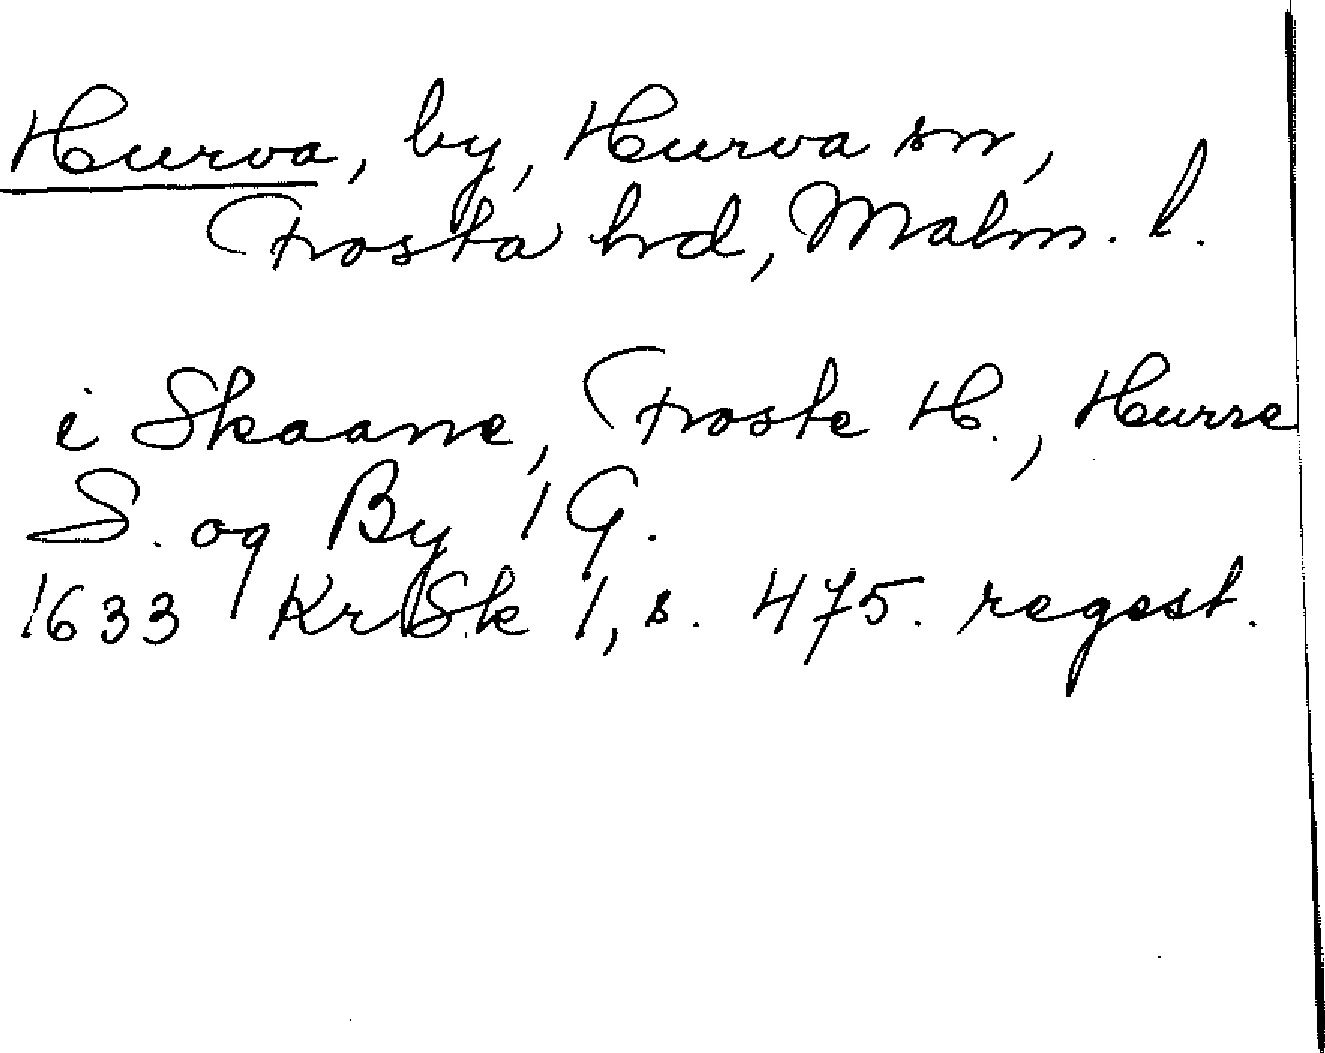 Hurva, by, Hurva sn,
Frosta hd, Malm. l.
i Skaane, Froste H., Hurre
S. og By 1 G.
1633 KrSk 1, s. 475. regest.